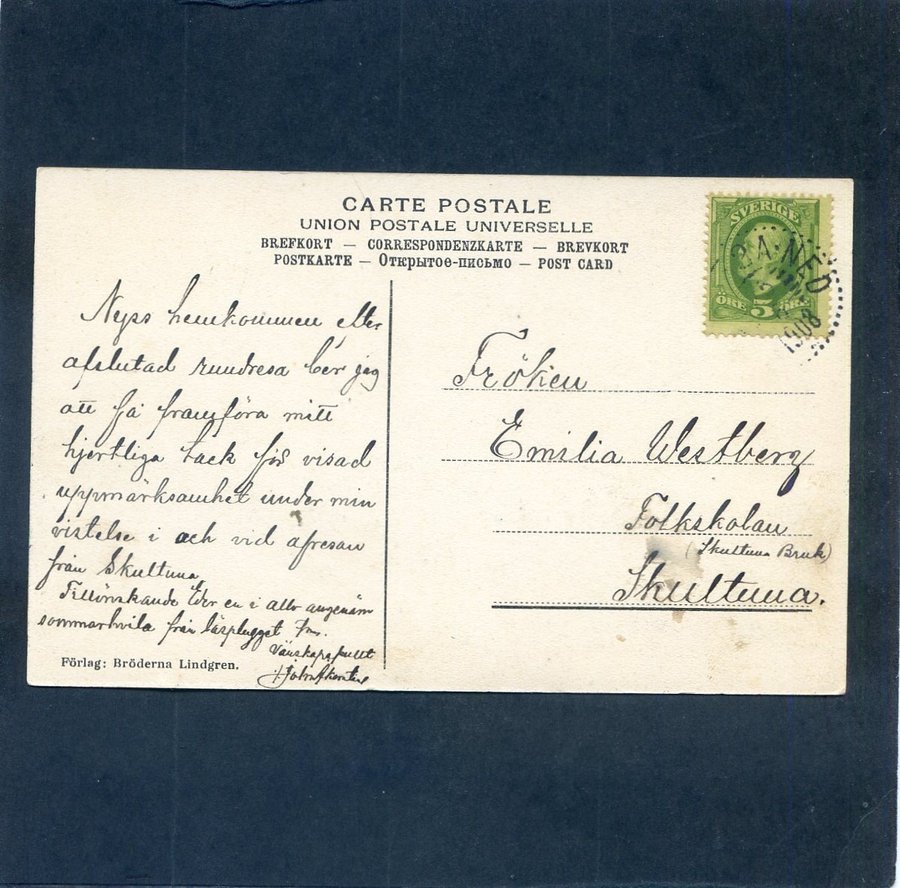 CARTE POSTALE
UNION POSTALE UNIVERSELLE
BREFKORT — CORRESPONDENZKARTE — BREVKORT
POSTKARTE — Открытое-письмо — POST CARD
SVERIGE
ÖRE 5 ÖRE
1908
Nyss hemkommen efter
afslutad rundresa ber jag
att få framföra mitt
hjertliga tack för visad
uppmärksamhet under min
vistelse i och vid afresan
från Skultuna
Tillönskande Eder en i allo angenäm
sommarhvila från läsplugget
Vänskapsfullt
Förlag: Bröderna Lindgren.
Fröken
Emilia Westberg
Folkskolan
(Skultuna Bruk)
Skultuna.